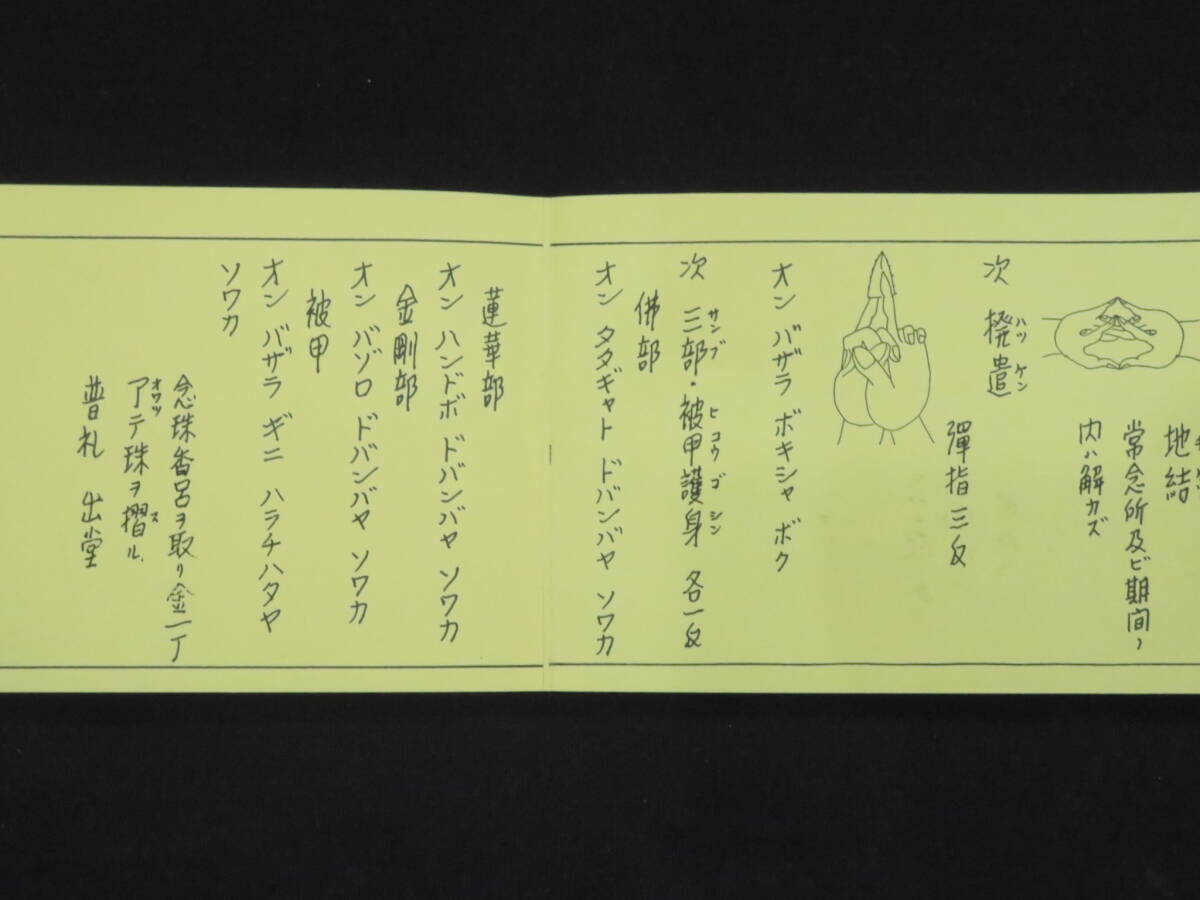 地結
常念所及ビ期間ノ
内ハ解カズ
次 撥遣
ハツ ケン
彈指三反
オン バザラ ボキシャ ボク
次 三部・被甲護身 各一反
サンブ ヒコウ ゴシン
佛部
オン タタギャト ドバンバヤ ソワカ
蓮華部
オン ハンドボ ドバンバヤ ソワカ
金剛部
オン バゾロ ドバンバヤ ソワカ
被甲
オン バザラ ギニ ハラチハタヤ
ソワカ
念珠香呂ヲ取リ金一丁
アテ珠ヲ摺ル.
ス
普礼 出堂